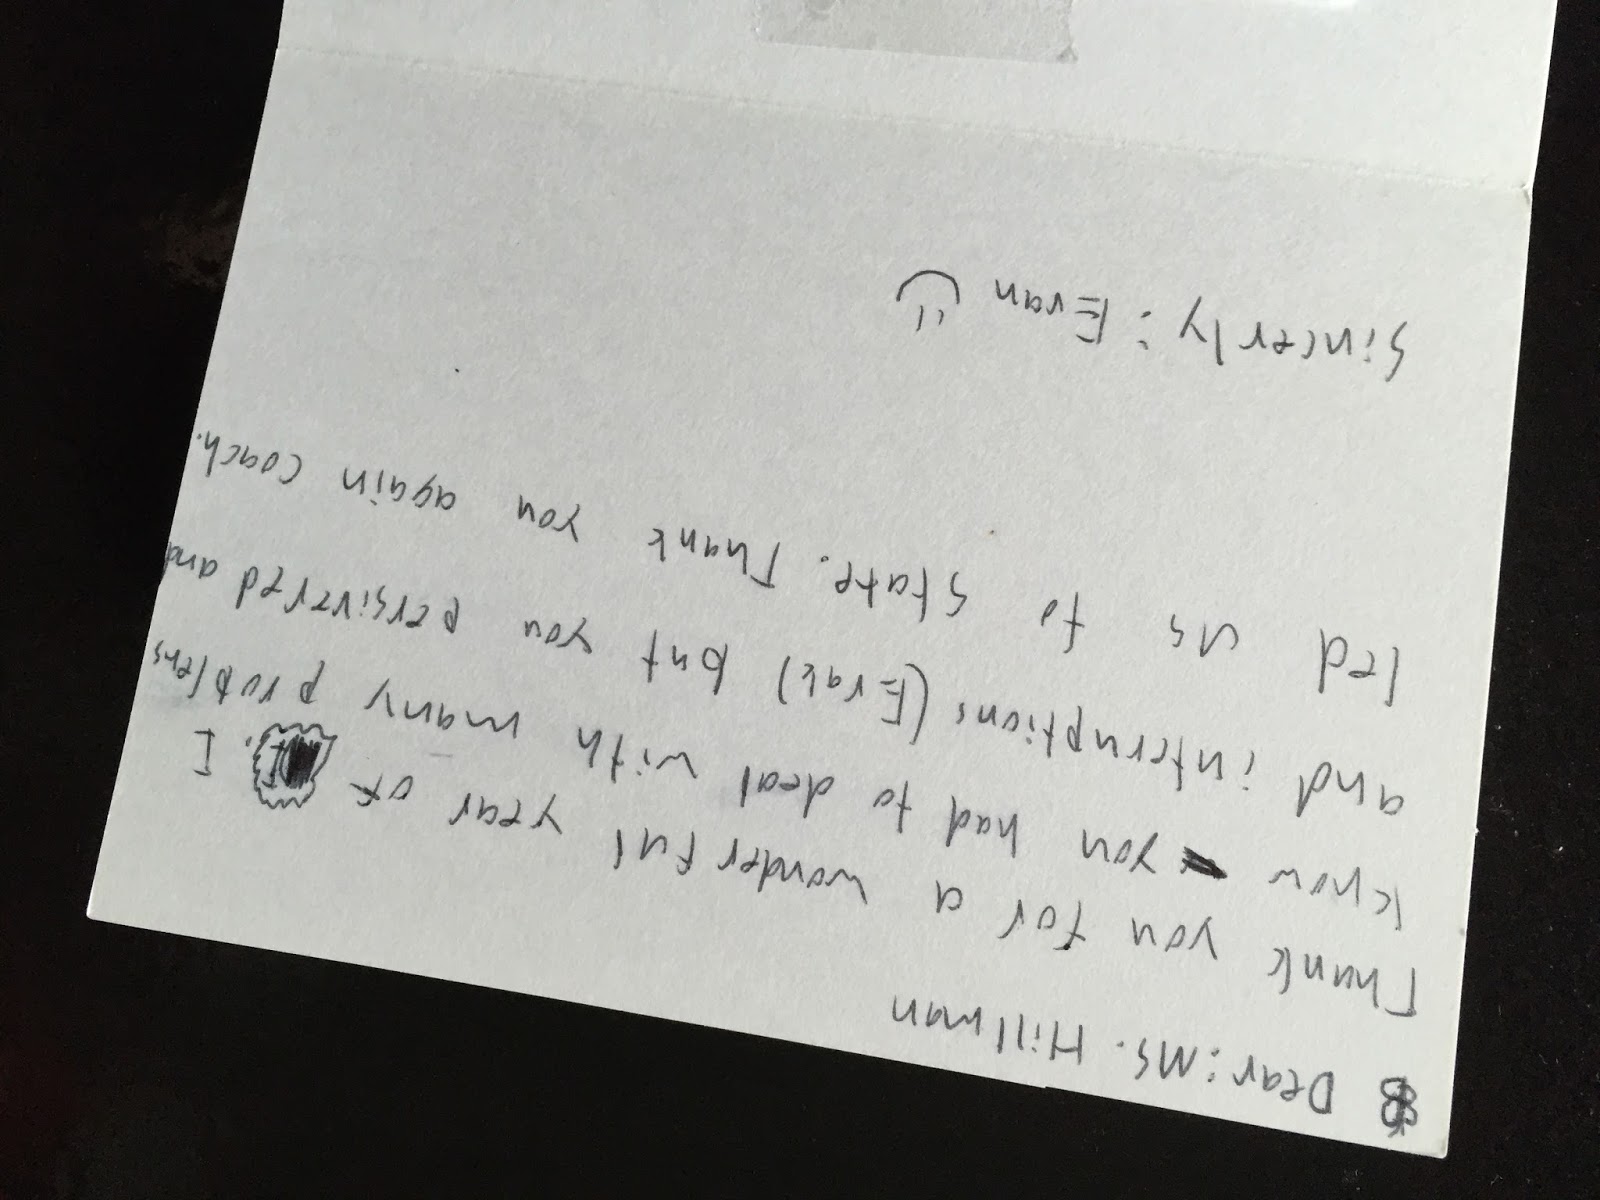 Dear: Ms. Hillman
Thank you for a wonderful year of I. I
know you had to deal with many problems
and interruptions (Evak) but you persivered and
led us to state. Thank you again coach.
Sincerly: Evan